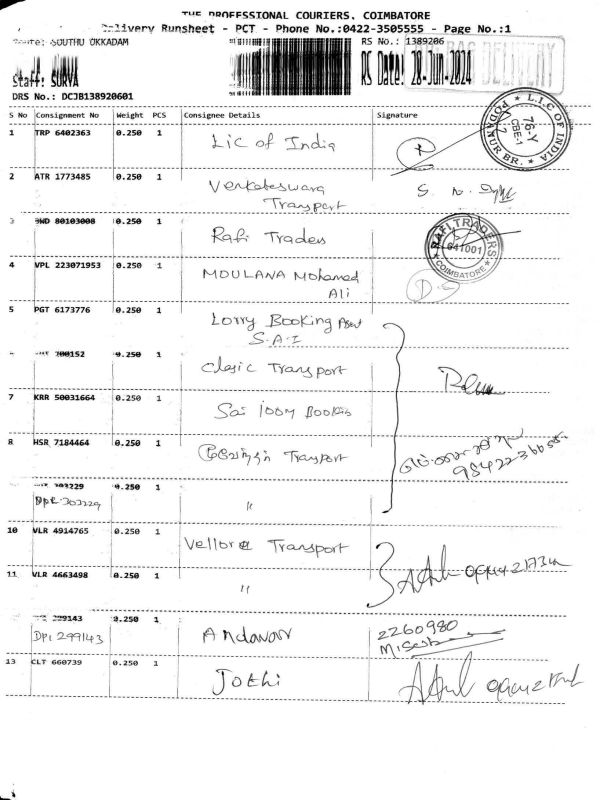 THE PROFESSIONAL COURIERS, COIMBATORE
Delivery Runsheet - PCT - Phone No.:0422-3505555 - Page No.:1
SOUTHU UKKADAM
RS No.: 1389206
Staff: SURYA
RS Date: 28-Jun-2024
DELIVERY
DRS No.: DCJB138920601
S No Consignment No Weight PCS Consignee Details Signature
1 TRP 6402363 0.250 1 Lic of India
L.I.C OF INDIA
PODANUR BR.
76-Y
CBE-1
2 ATR 1773485 0.250 1 Venkateswara
Transport
3 80103008 0.250 1 Rafi Traders
RAFI TRADERS
641001
COIMBATORE
4 VPL 223071953 0.250 1 MOULANA Mohamed
Ali
5 PGT 6173776 0.250 1 Lorry Booking
S.A.I
700152 0.250 1 Clasic Transport
7 KRR 50031664 0.250 1 Sai lorry Booking
8 HSR 7184464 0.250 1 Transport
303229 0.250 1
303229 "
10 VLR 4914765 0.250 1 Vellore Transport
11 VLR 4663498 0.250 1
"
299143 0.250 1 Andavar 2260980
299143
13 CLT 660739 0.250 1 Jothi